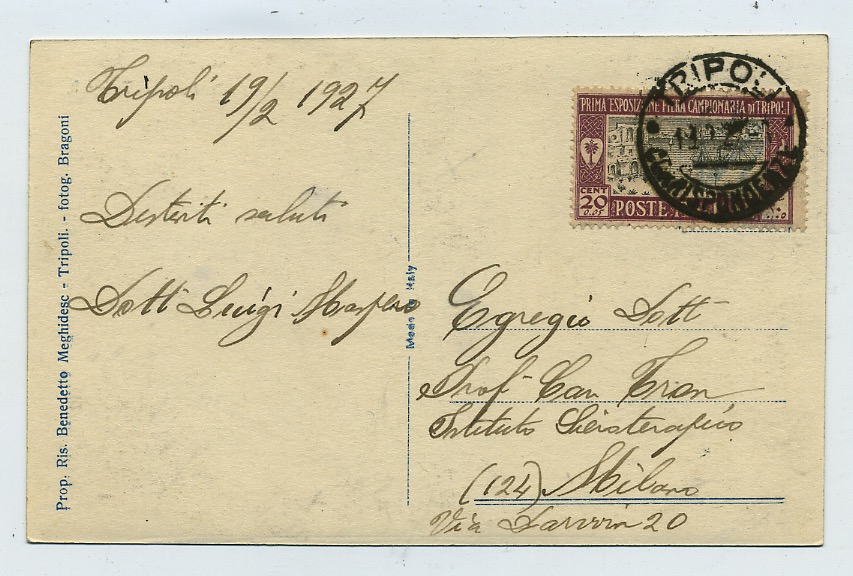 Tripoli 19/2 1927
Distinti saluti
Dott Luigi
Prop. Ris. Benedetto Meghidesc - Tripoli. - fotog. Bragoni
Made in Italy
PRIMA ESPOSIZIONE FIERA CAMPIONARIA DI TRIPOLI
CENT
20
POSTE
TRIPOLI
CORRISPONDENZE
Egregio Dott
Prof. Cav
Istituto Sieroterapico
(124) Milano
Via Darwin 20